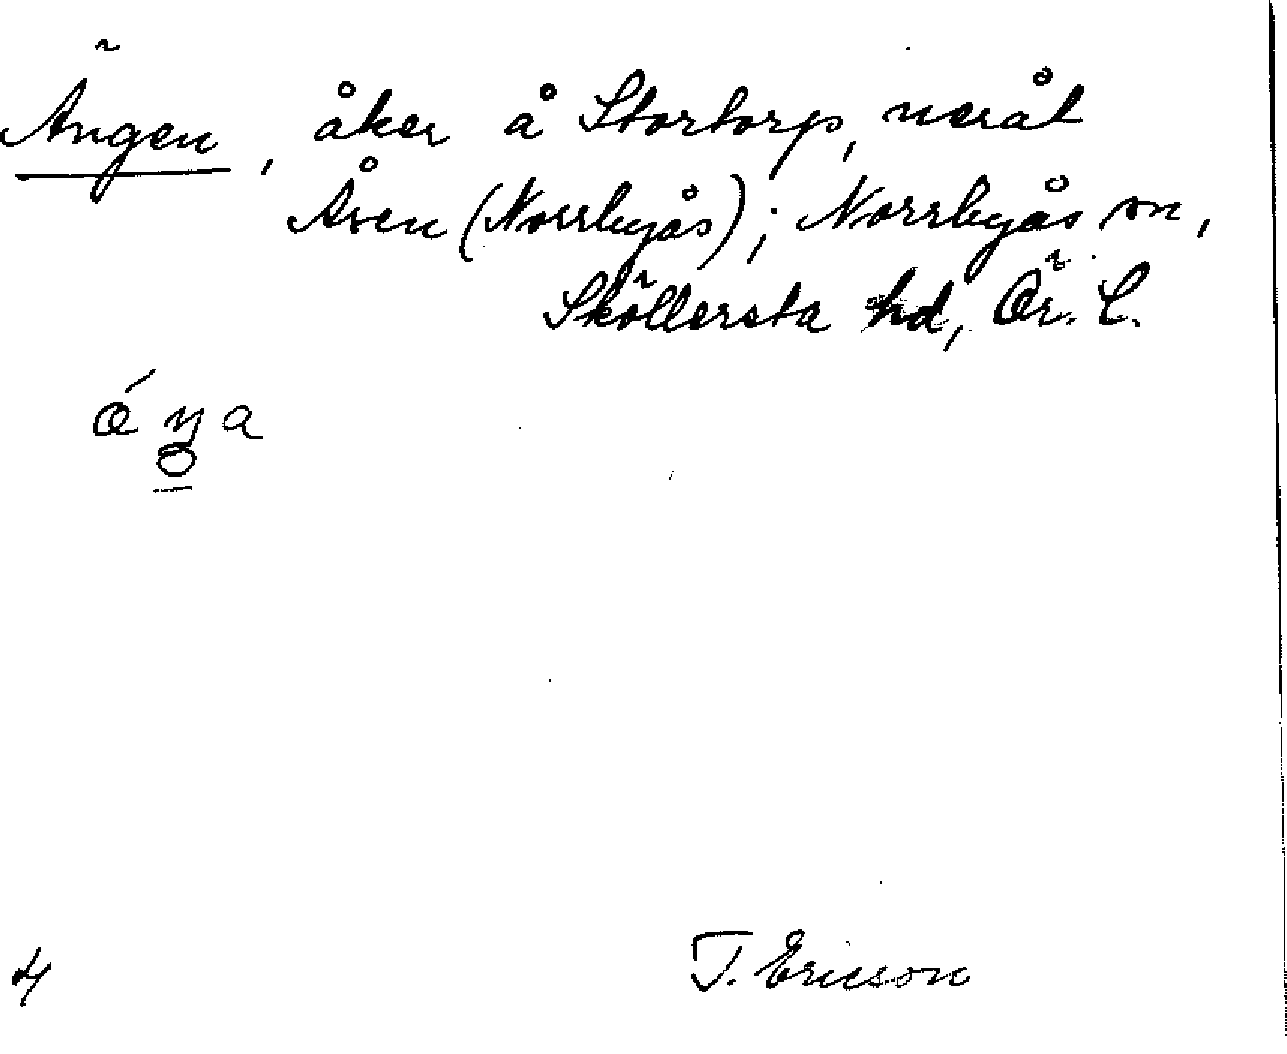 Ängen, åker å Stortorp, neråt
Åsen (Norrbyås); Norrbyås sn,
Sköllersta hd, Ör. L.
4
T. Ericson